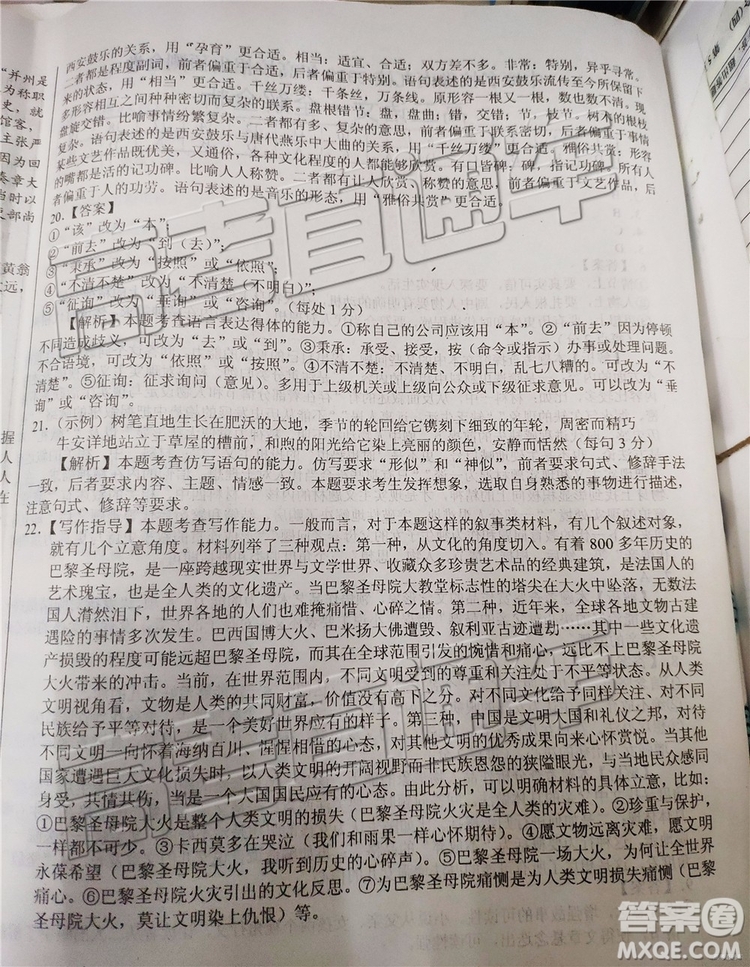 西安鼓乐的关系，用“孕育”更合适。相当：适宜、合适；双方差不多。非常：特别，异乎寻常。
二者都是程度副词，前者偏重于合适，后者偏重于特别。语句表述的是西安鼓乐流传至今所保留下
来的状态，用“相当”更合适。千丝万缕：千条丝，万条线。原形容一根又一根，数也数不清。现
多形容相互之间种种密切而复杂的联系。盘根错节：盘，盘曲；错，交错；节，枝节。树木的根枝
盘旋交错。比喻事情纷繁复杂。二者都有多、复杂的意思，前者偏重于联系密切，后者偏重于事情
复杂。语句表述的是西安鼓乐与唐代燕乐中大曲的关系，用“千丝万缕”更合适。雅俗共赏：形容
某些文艺作品既优美，又通俗，各种文化程度的人都能够欣赏。有口皆碑：碑，指记功碑。所有人
的嘴都是活的记功碑。比喻人人称赞。二者都有让人欣赏、称赞的意思，前者偏重于文艺作品，后
者偏重于人的功劳。语句表述的是音乐的形态，用“雅俗共赏”更合适。
20.【答案】
①“该”改为“本”；
②“前去”改为“到（去）”；
③“秉承”改为“按照”或“依照”；
④“不清不楚”改为“不清楚（不明白）”；
⑤“征询”改为“垂询”或“咨询”。（每处1分）
【解析】本题考查语言表达得体的能力。①称自己的公司应该用“本”。②“前去”因为停顿
不同造成歧义，可改为“去”或“到”。③秉承：承受、接受，按（命令或指示）办事或处理问题。
不合语境，可改为“依照”或“按照”。④不清不楚：不清楚、不明白，乱七八糟的。可改为“不
清楚”。⑤征询：征求询问（意见）。多用于上级机关或上级向公众或下级征求意见。可以改为“垂
询”或“咨询”。
21.（示例）树笔直地生长在肥沃的大地，季节的轮回给它镌刻下细致的年轮，周密而精巧
牛安详地站立于草屋的槽前，和煦的阳光给它染上亮丽的颜色，安静而恬然（每句3分）
【解析】本题考查仿写语句的能力。仿写要求“形似”和“神似”，前者要求句式、修辞手法
一致，后者要求内容、主题、情感一致。本题要求考生发挥想象，选取自身熟悉的事物进行描述，
注意句式、修辞等要求。
22.【写作指导】本题考查写作能力。一般而言，对于本题这样的叙事类材料，有几个叙述对象，
就有几个立意角度。材料列举了三种观点：第一种，从文化的角度切入。有着800多年历史的
巴黎圣母院，是一座跨越现实世界与文学世界、收藏众多珍贵艺术品的经典建筑，是法国人的
艺术瑰宝，也是全人类的文化遗产。当巴黎圣母院大教堂标志性的塔尖在大火中坠落，无数法
国人潸然泪下，世界各地的人们也难掩痛惜、心碎之情。第二种，近年来，全球各地文物古建
遇险的事情多次发生。巴西国博大火、巴米扬大佛遭毁、叙利亚古迹遭劫……其中一些文化遗
产损毁的程度可能远超巴黎圣母院，而其在全球范围引发的惋惜和痛心，远比不上巴黎圣母院
大火带来的冲击。当前，在世界范围内，不同文明受到的尊重和关注处于不平等状态。从人类
文明视角看，文物是人类的共同财富，价值没有高下之分。对不同文化给予同样关注，对不同
民族给予平等对待，是一个美好世界应有的样子。第三种，中国是文明大国和礼仪之邦，对待
不同文明一向怀着海纳百川、惺惺相惜的心态，对其他文明的优秀成果向来心怀景仰。当其他
国家遭遇巨大文化损失时，以人类文明的开阔视野而非民族恩怨的狭隘眼光，与当地民众感同
身受，共情共伤，当是一个大国国民应有的心态。由此分析，可以明确材料的具体立意，比如：
①巴黎圣母院火灾是整个人类文明的损失（巴黎圣母院火灾是全人类的灾难）。②珍重与保护，
一样都不能少。③卡西莫多在哭泣（我们和雨果一样心怀期待）。④愿文物远离灾难，愿世界
永葆希望（巴黎圣母院大火，我听到历史的心碎声）。⑤巴黎圣母院一场大火，为何让全世界
痛心。⑥巴黎圣母院火灾引出的文化反思。⑦为巴黎圣母院痛恻是为人类文明损失痛恻（巴黎
圣母院大火，莫让文明染上仇恨）等。
“并州是
为称职
史，就
馆客，
主张严
因为回
奏章大
当时以
吏部尚
黄翁
文远，
握
人
人
在
高考直通车
高考直通车
答案圈
MXQE.COM